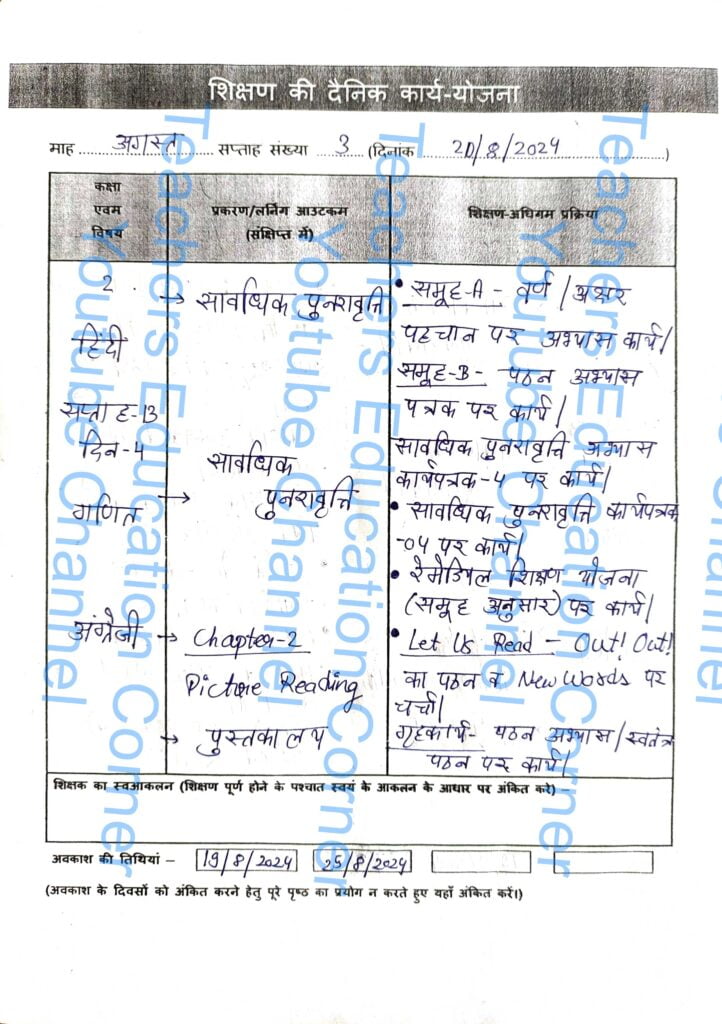 शिक्षण की दैनिक कार्य-योजना
माह अगस्त सप्ताह संख्या 3 (दिनांक 20/8/2024)
कक्षा एवम विषय
प्रकरण/लर्निंग आउटकम (संक्षिप्त में)
शिक्षण-अधिगम प्रक्रिया
2
हिंदी
सप्ताह-13
दिन-4
→ सावधिक पुनरावृत्ति
• समूह-A - वर्ण/अक्षर
पहचान पर अभ्यास कार्य।
समूह-B - पठन अभ्यास
पत्रक पर कार्य।
सावधिक पुनरावृत्ति अभ्यास
कार्यपत्रक-4 पर कार्य।
गणित
→ सावधिक
पुनरावृत्ति
• सावधिक पुनरावृत्ति कार्यपत्रक
-04 पर कार्य।
• रेमेडियल शिक्षण योजना
(समूह अनुसार) पर कार्य।
अंग्रेजी
→ Chapter-2
Picture Reading
• Let Us Read - Out! Out!
का पठन व New Words पर
चर्चा।
→ पुस्तकालय
गृहकार्य- पठन अभ्यास/स्वतंत्र
पठन पर कार्य।
शिक्षक का स्वआकलन (शिक्षण पूर्ण होने के पश्चात स्वयं के आकलन के आधार पर अंकित करे) –
अवकाश की तिथियां – 19/8/2024 25/8/2024
(अवकाश के दिवसों को अंकित करने हेतु पूरे पृष्ठ का प्रयोग न करते हुए यहाँ अंकित करें।)
Teachers Education Corner
Youtube Channel
Teachers Education Corner
Youtube Channel
Teachers Education Corner
Youtube Channel